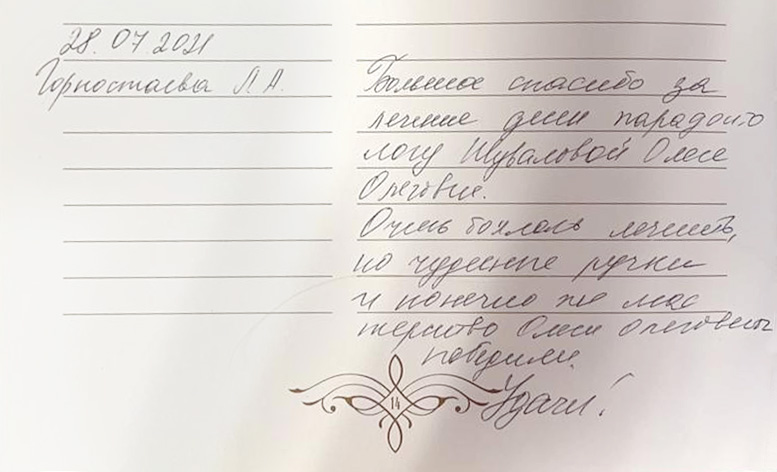 28.07.2021
Горностаева Л.А.
Большое спасибо за
лечение десен парадонто
логу Шуваловой Олесе
Олеговне.
Очень боялась лечить,
но чудесные ручки
и конечно же мас
терство Олеси Олеговны
победили.
Удачи!
14